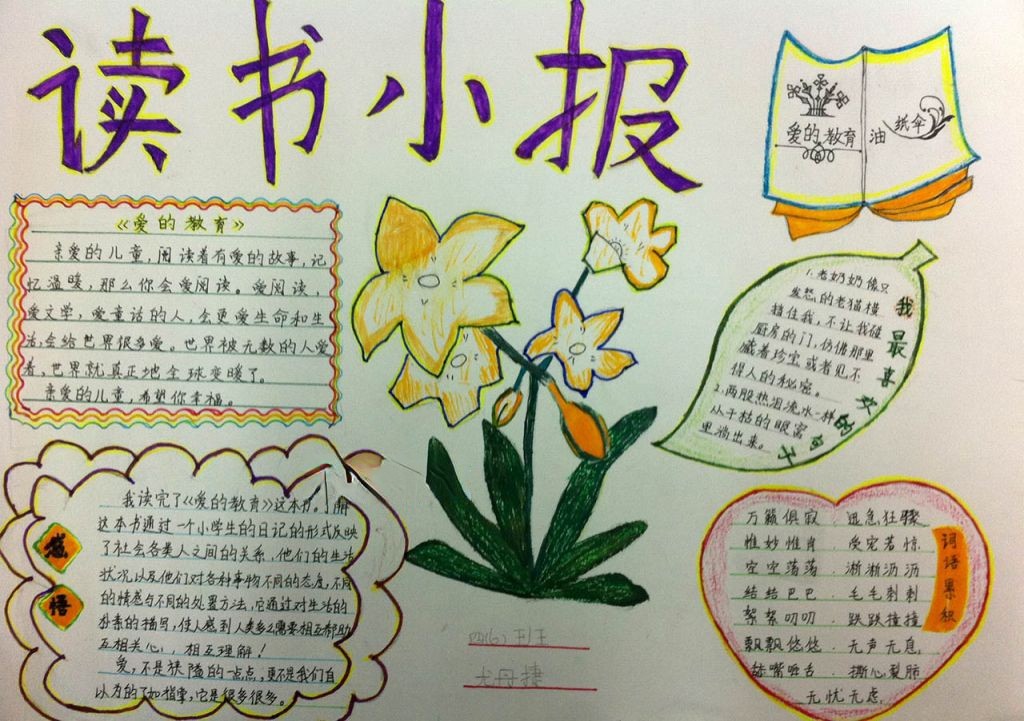 读书小报
爱的教育
油纸伞
《爱的教育》
亲爱的儿童，阅读着有爱的故事，记
忆温暖，那么你会爱阅读。爱阅读，
爱文学，爱童话的人，会更爱生命和生
活，会给世界很多爱。世界被无数的人爱
着，世界就真正地全球变暖了。
亲爱的儿童，希望你幸福。
我最喜欢的句子
1.老奶奶像只
发怒的老猫横
挡住我，不让我碰
厨房的门，仿佛那里
藏着珍宝或者见不
得人的秘密。
2.两股热泪流水一样
从干枯的眼窝
里淌出来。
感悟
我读完了《爱的教育》这本书。
这本书通过一个小学生的日记的形式反映
了社会各类人之间的关系，他们的生活
状况以及他们对各种事物不同的态度，不同
的情感与不同的处置方法，它通过对生活的
朴素的描写，使人感到人类多么需要相互帮助
互相关心，相互理解！
爱，不是狭隘的一点点，更不是我们自
以为的了如指掌，它是很多很多。
词语累积
万籁俱寂 迅急狂骤
惟妙惟肖 受宠若惊
空空荡荡 淅淅沥沥
结结巴巴 毛毛刺刺
絮絮叨叨 跌跌撞撞
飘飘悠悠 无声无息
舔嘴咂舌 撕心裂肺
无忧无虑
四(6)班